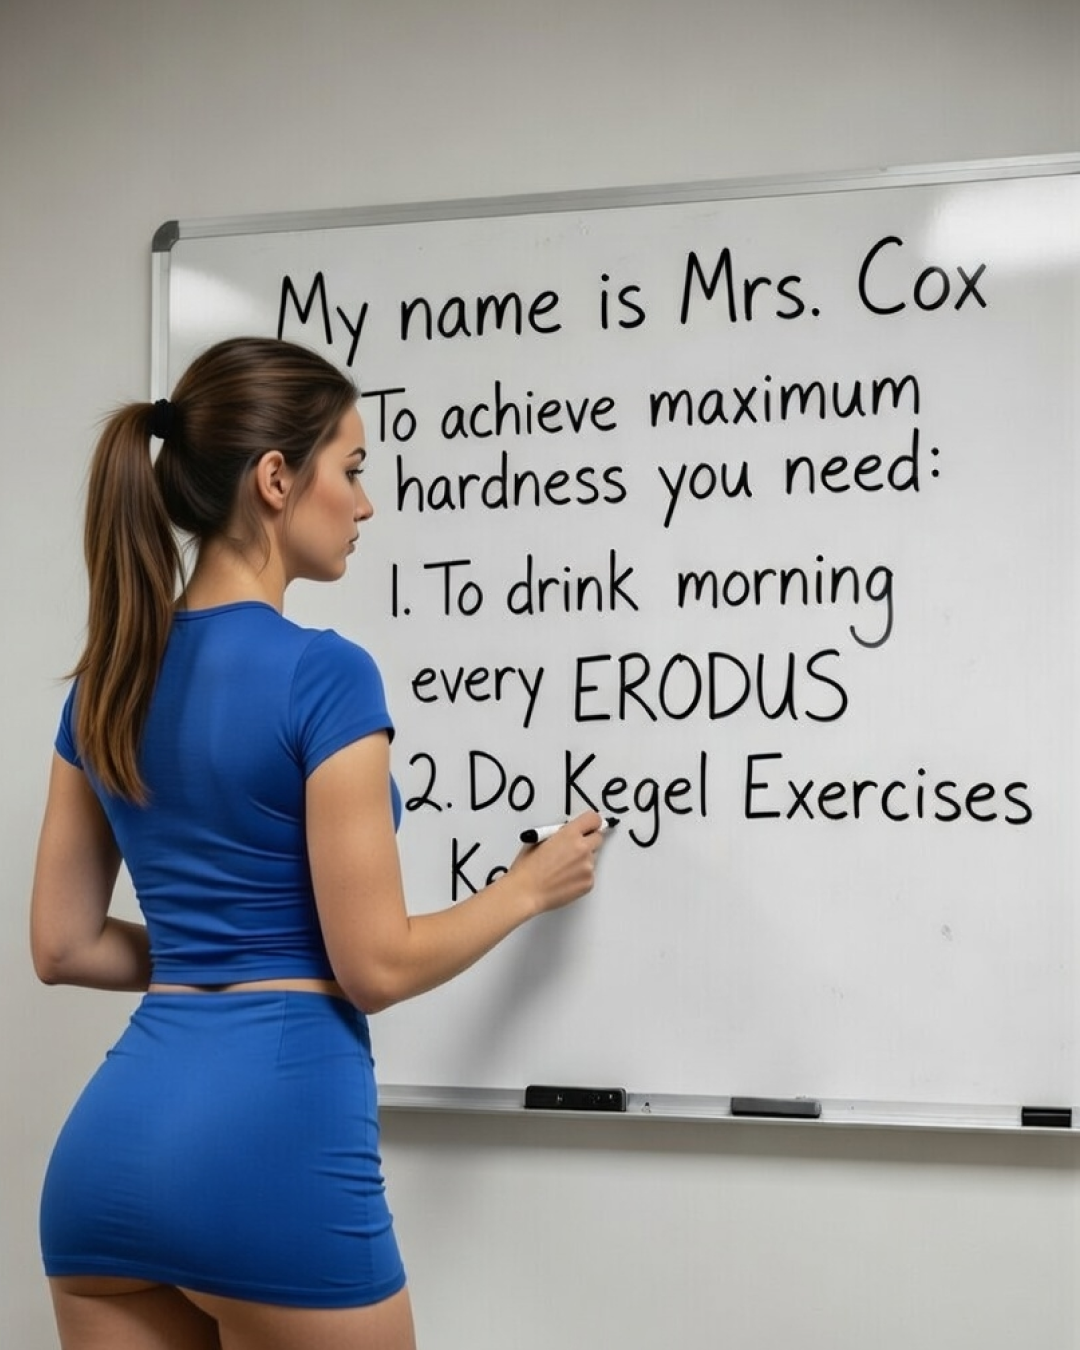 My name is Mrs. Cox
To achieve maximum
hardness you need:
1. To drink morning
every ERODUS
2. Do Kegel Exercises